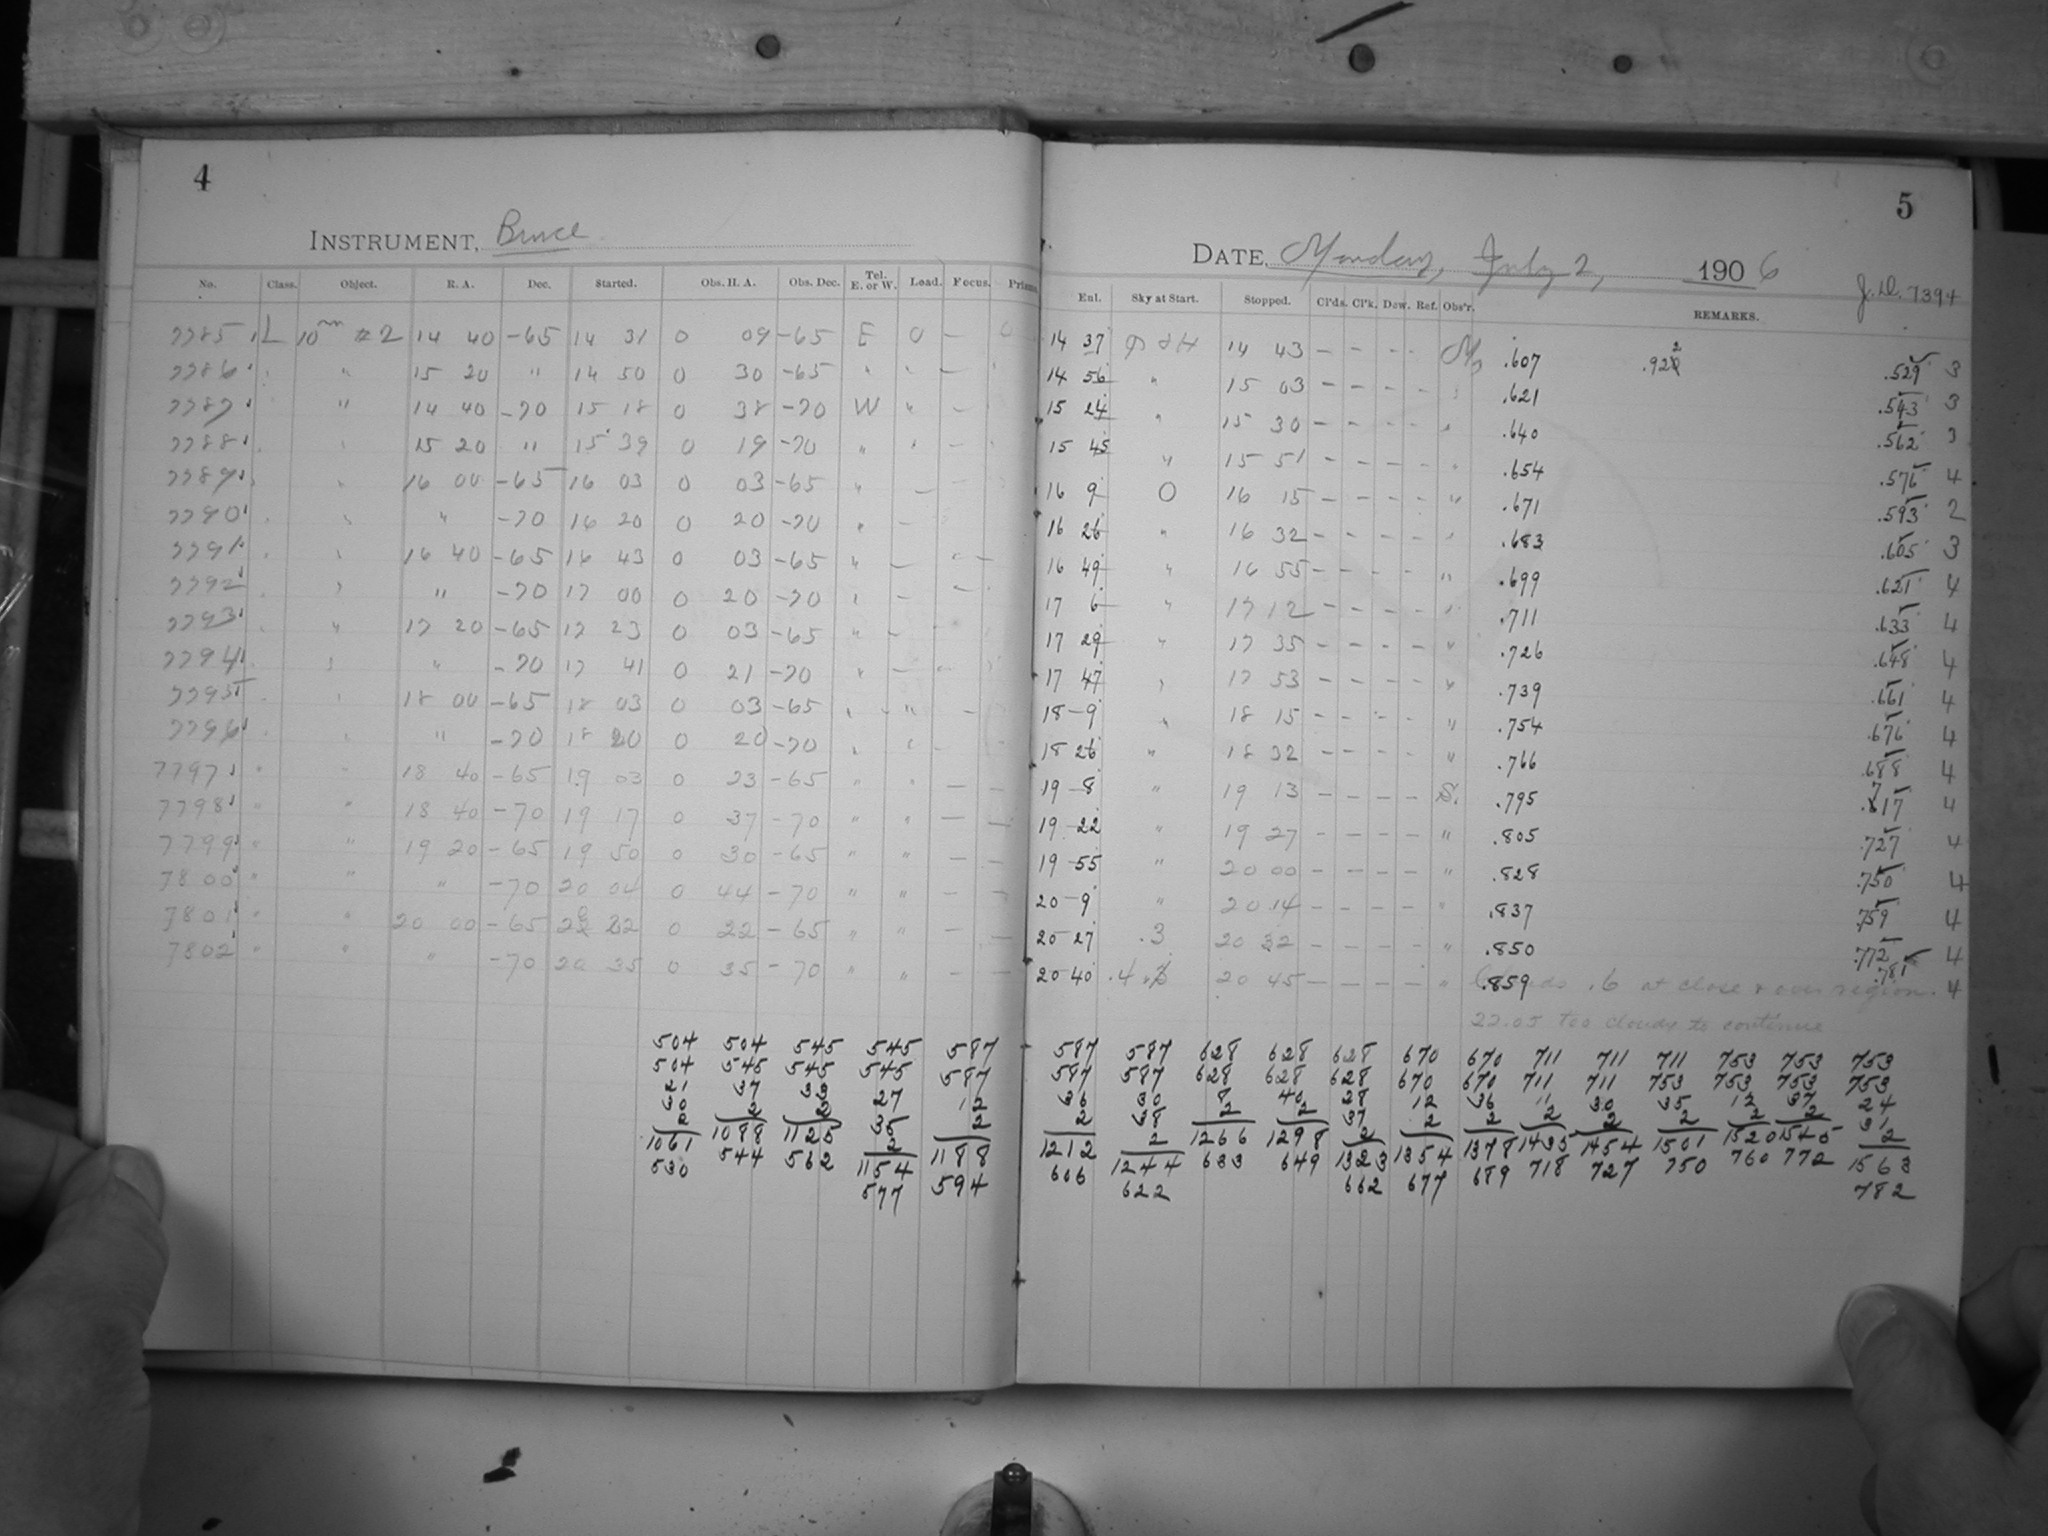 4
INSTRUMENT, Bruce
No. Class. Object. R. A. Dec. Started. Obs. H. A. Obs. Dec. Tel. E. or W. Load. Focus. Prisms
7785 L 10 m #2 14 40 -65 14 31 0 09 -65 E 0 —
7786 " 15 20 " 14 50 0 30 -65 " " —
7787 " 14 40 -70 15 18 0 38 -70 W " —
7788 15 20 " 15 39 0 19 -70 " —
7789 16 00 -65 16 03 0 03 -65 " —
7790 " " -70 16 20 0 20 -70 " —
7791 16 40 -65 16 43 0 03 -65 " —
7792 " -70 17 00 0 20 -70 —
7793 " 17 20 -65 17 23 0 03 -65 " —
7794 " -70 17 41 0 21 -70 " —
7795 18 00 -65 18 03 0 03 -65 " —
7796 " -70 18 20 0 20 -70 —
7797 " " 18 40 -65 19 03 0 23 -65 " " — —
7798 " " 18 40 -70 19 17 0 37 -70 " " — —
7799 " " 19 20 -65 19 50 0 30 -65 " " — —
7800 " " " -70 20 04 0 44 -70 " " — —
7801 " " 20 00 -65 20 22 0 22 -65 " " — —
7802 " " " -70 20 35 0 35 -70 " " — —
504 504 545 545 587
504 545 545 545 587
21 37 33 27 12
30 2 2 35 2
2 1088 1125 2 1188
1061 544 562 1154 594
530 577
5
DATE, Monday, July 2, 1906
J.D. 7394
Enl. Sky at Start. Stopped. Cl'ds. Cl'k. Dew. Ref. Obs'r. REMARKS.
14 37 14 43 — — — — .607 .922 .529 3
14 56 " 15 03 — — — — .621 .543 3
15 24 " 15 30 — — — — " .640 .562 3
15 45 " 15 51 — — — — " .654 .576 4
16 9 O 16 15 — — — — " .671 .593 2
16 26 " 16 32 — — — — " .683 .605 3
16 49 " 16 55 — — — — " .699 .621 4
17 6 " 17 12 — — — — " .711 .633 4
17 29 " 17 35 — — — — " .726 .648 4
17 47 " 17 53 — — — — " .739 .661 4
18-9 " 18 15 — — — — " .754 .676 4
18 26 " 18 32 — — — — " .766 .688 4
19-8 " 19 13 — — — — S. .795 .717 4
19-22 " 19 27 — — — — " .805 .727 4
19-55 " 20 00 — — — — " .828 .750 4
20-9 " 20 14 — — — — " .837 .759 4
20-27 .3 20 32 — — — — " .850 .772 4
20-40 .4 20 45 — — — — " .859 .6 at close & over region. .781 4
22.05 too cloudy to continue
587 587 628 628 628 670 670 711 711 711 753 753 753
587 587 628 628 628 670 670 711 711 753 753 753 753
36 30 8 40 28 12 36 11 30 35 12 37 24
2 38 2 2 37 2 2 2 2 2 2 2 31
1212 2 1266 1298 2 1354 1378 1435 1454 1501 1520 1545 2
606 1244 633 649 1323 677 689 718 727 750 760 772 1563
622 662 782